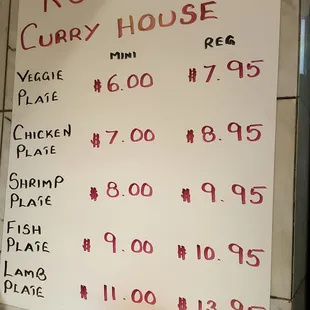 CURRY HOUSE
MINI REG
VEGGIE PLATE $6.00 $7.95
CHICKEN PLATE $7.00 $8.95
SHRIMP PLATE $8.00 $9.95
FISH PLATE $9.00 $10.95
LAMB PLATE $11.00 $13.95